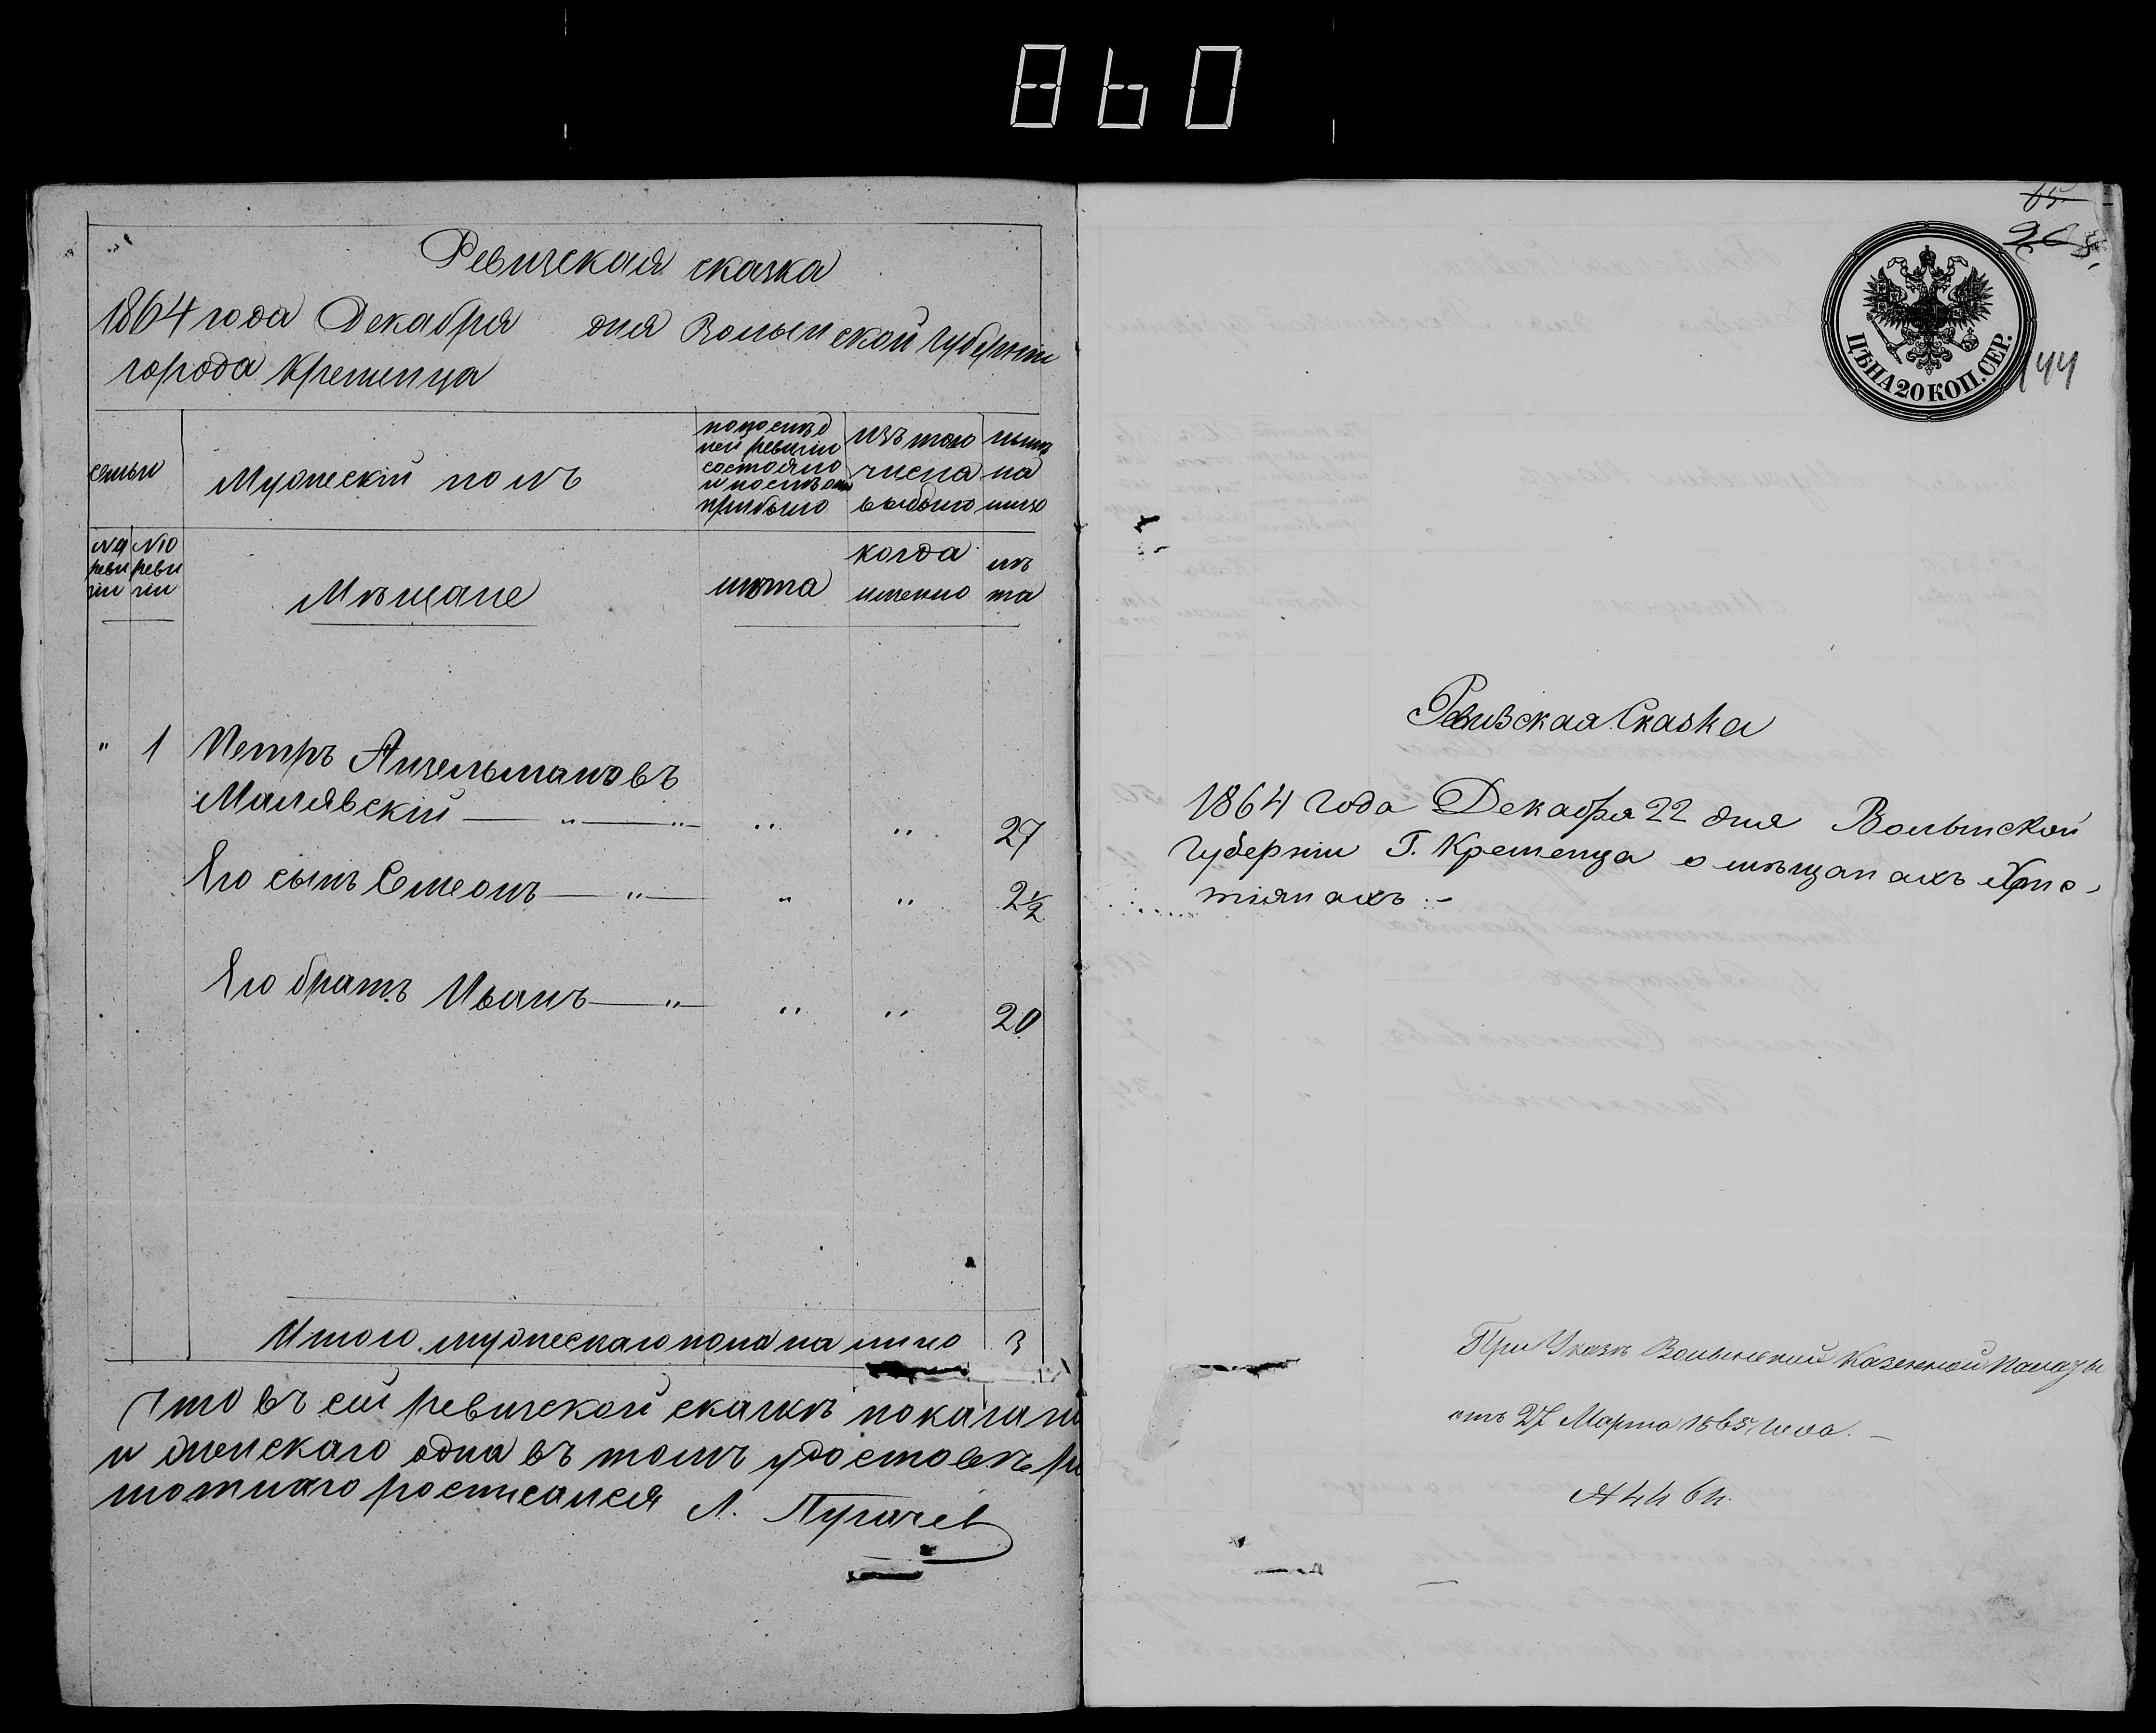 860
Ревизская сказка
1864 года Декабря дня Волынской губернии
города Кременца
семьи
Мужескій полъ
по послѣд
ней ревизіи
состояло
и послѣ онои
прибыло
изъ того
числа
выбыло
нынѣ
на
лицо
№9
реви
зіи
№10
реви
зіи
Мѣщане
лѣта
когда
именно
лѣ
та
" 1 Петръ Анзельмановъ
Малявскій — " — " " " 27
Его сынъ Семеонъ — " — " " 2½
Его братъ Иванъ — " — " " 20
Итого мужескаго пола на лицо 3
Что въ сей ревизской сказкѣ показаны
и женскаго одна въ томъ удостовѣ
росписался Л. Пугачев
65
ЦѢНА 20 КОП. СЕР.
144
Ревизская Сказка
1864 года Декабря 22 дня Волынской
Губерніи Г. Кременца о мѣщанахъ Хрис-
тіянахъ.-
При Указѣ Волынской Казенной Палаты
отъ 27 Марта 1865 года. –